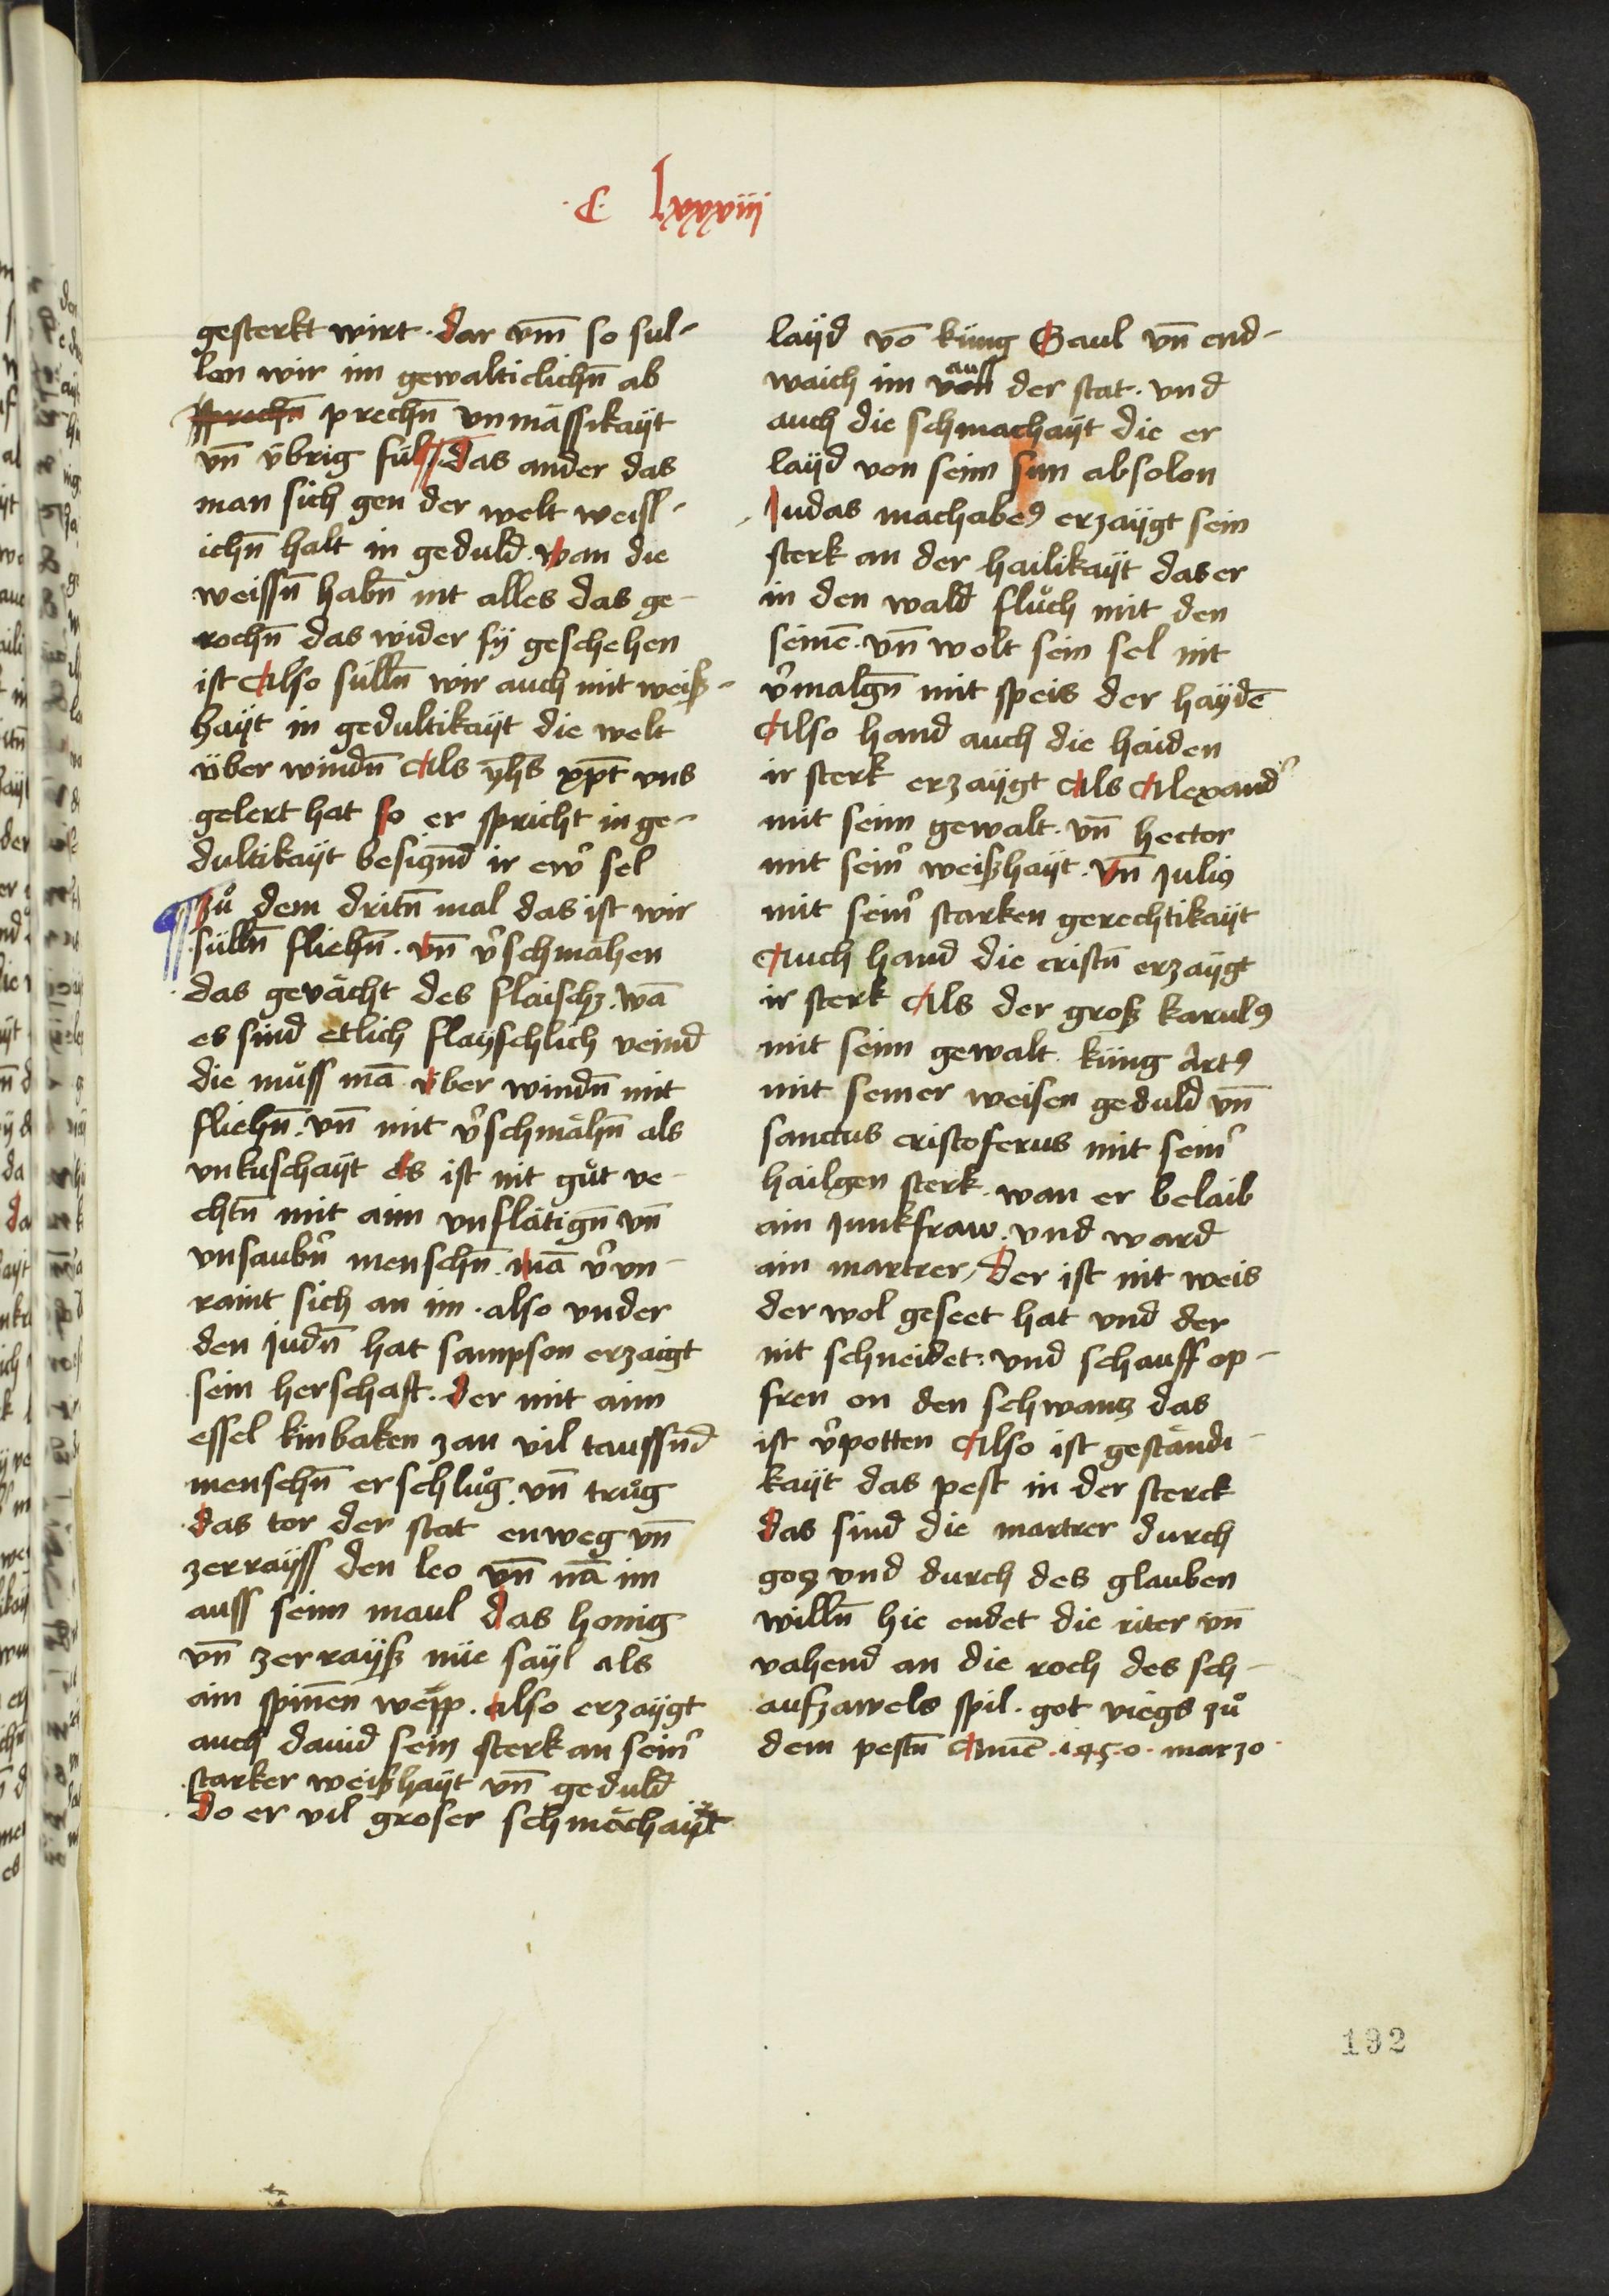 ·C· lxxxviii
gesterkt wirt · dar vm̄ so sul-
len wir im gewalticlichn̄ ab
sprechn̄ prechn̄ vnmässikaÿt
vn̄ übrig fül das ander das
man sich gen der welt weisl-
ichn̄ halt in geduld · wan die
weissn̄ habn̄ nit alles das ge-
rochn̄ das wider sÿ geschehen
ist Also sülln̄ wir auch mit weiß-
haÿt in gedultikaÿt die welt
über windn̄ Als ÿhs̄ xpt̄ vns
gelert hat so er spricht in ge-
dultikaÿt besignd̄ ir ew̓ sel
¶ Zů dem dritn̄ mal das ist wir
sülln̄ fliehn̄ · vn̄ v̓schmahen
das gevächt des flaischz · wā
es sind etlich flaÿschlich veind
die můss mā über windn̄ mit
fliehn̄ · vn̄ mit v̓schmähn̄ als
vnkuschaÿt es ist nit gůt ve-
chtn̄ mit aim vnflätign̄ vn̄
vnsaubn̓ menschn̄ · mā v̓vn-
raint sich an im · also vnder
den judn̄ hat sampson erzaigt
sein herschaft · der mit aim
essel kinbaken zan vil taussnd̄
menschn̄ erschlůg · vn̄ trůg
das tor der stat enweg vn̄
zerraÿss den leo vn̄ nā im
auss seim maul das honig
vn̄ zerraÿß nüe saÿl als
ain spinēn wepp · also erzaÿgt
auch dauid sein sterk an sein̓
starker weißhaÿt vn̄ geduld
do er vil groser schmechaÿt
laÿd vō küng Saul vn̄ end-
waich im von auss der stat · vnd
auch die schmachaÿt die er
laÿd von seim sun absolon
Judas machabeꝰ erzaÿgt sein
sterk an der hailikaÿt das er
in den wald flůch mit den
seinē · vn̄ wolt sein sel nit
v̓malgn̄ mit speis der haÿdē
Also hand auch die haiden
ir sterk erzaÿgt Als Alexand̓
mit seim gewalt · vn̄ hector
mit sein̓ weißhaÿt · Vn̄ Juliꝰ
mit sein̓ starken gerechtikaÿt
Auch hand die cristn̄ erzaÿgt
ir sterk Als der groß karulꝰ
mit seim gewalt · küng Artꝰ
mit seiner weisen geduld vn̄
sanctus cristoferus mit sein̓
hailgen sterk · wan er belaib
ain Junkfraw · vnd ward
ain martrer / Der ist nit weis
der wol geseet hat vnd der
nit schneidet · vnd schauff op-
fren on den schwantz das
ist v̓potten Also ist geständi-
kaÿt das pest in der sterck
das sind die martrer durch
gotz vnd durch des glauben
willn̄ hie endet die riter vn̄
vahend an die roch des sch-
aufzawels spil · got viegs zů
dem pestn̄ Amē · 1450 · marzo ·
192